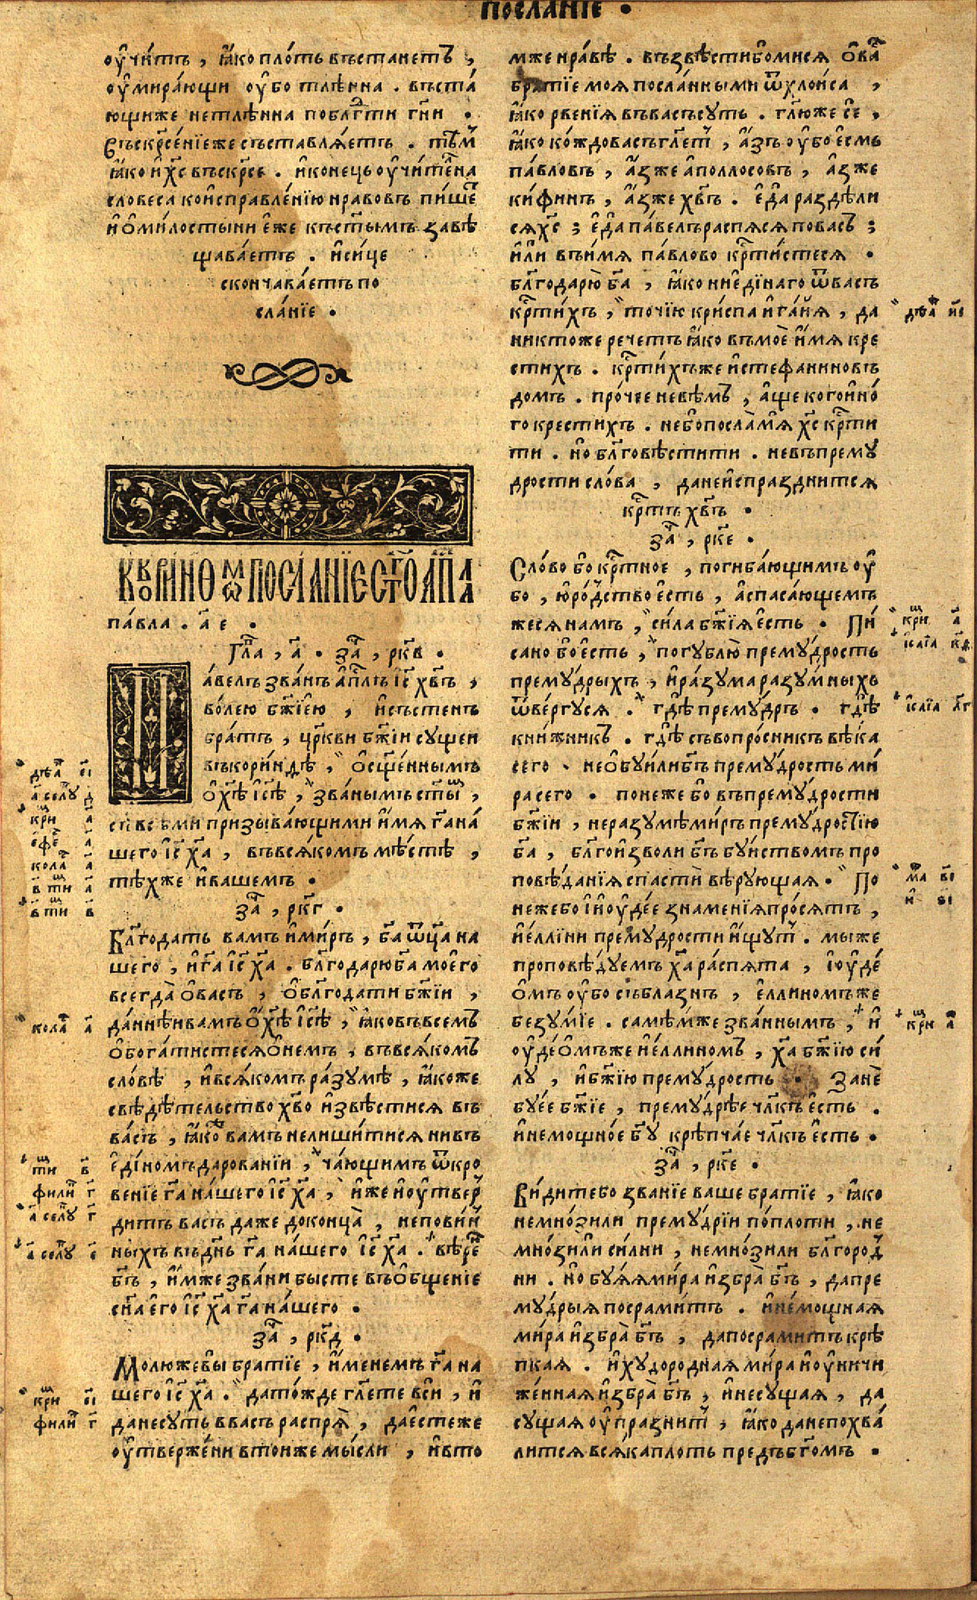 посланїе .
оучитъ , ꙗко плоть въстанетъ ,
оумирающи оубо тлѣнна . въста
ющиже нетлѣнна поблг҃ти гн҃и .
въскр҃сенїе же съставляетъ . тѣм
ꙗко и х҃с въскр҃се . и конець оучителна
словеса ко исправленїю нравовъ пише
и о милостыни еже къ ст҃ымъ завѣ
щаваетъ . и сице
скончаваетъ по
сланїе .
къ коринѳомъ посланїе ст҃го ап҃ла
павла . а҃ е .
гла , а҃ . за , рк҃в .
Павелъ званъ ап҃лъ іс҃ хв҃ъ ,
волею бж҃їею , и състенъ
братъ , цр҃кви бж҃їи сущеи
въ коринѳѣ , осщ҃еннымъ
о хс҃ѣ іс҃ѣ , званымъ ст҃ы ,
съ всѣми призывающими имя га҃ на
шего іс҃ ха҃ , въ всякомъ мѣстѣ ,
тѣхже и вашемъ .
за , рк҃г .
Блг҃одать вамъ и миръ , ба҃ ѿца҃ на
шего , и га҃ іс҃ ха҃ . блг҃одарю ба҃ моего
всегда о васъ , о блг҃одати бж҃їи ,
даннѣи вамъ о хс҃ѣ іс҃ѣ , ꙗко въ всемъ
обогатистеся о немъ , въ всякомъ
словѣ , и всякомъ разумѣ , ꙗкоже
свѣдѣтельство хв҃о извѣстися въ
васъ , ꙗко вамъ не лишитися ни въ
единомъ даровании , чающимъ ѿкро
венїе га҃ нашего іс҃ ха҃ , иже и оутвер
дитъ васъ даже до конца , неповин
ныхъ въ дн҃ь га҃ нашего іс҃ ха҃ . вѣрен
бг҃ъ , имже звани бысте въ общенїе
сн҃а его іс҃ ха҃ га҃ нашего .
за , рк҃д .
Молю же вы братїе , именемъ га҃ на
шего іс҃ ха҃ . да тожде гл҃ете вси , и
да не суть в васъ распря , да есте же
оутвержени в тоиже мысли , и в то
мже нравѣ . възвѣсти бо ми ся о ва
братїе моя посланными ѿ хлоиса ,
ꙗко рвенїя въ васъ суть . гл҃ю же се ,
ꙗко кождо васъ гл҃ет , азъ оубо есмь
павловъ , аз же аполлосовъ , аз же
кифинъ , аз же хв҃ъ . еда раздѣли
ся хс҃ ; еда павелъ распяся по васъ ;
или въ имя павлово кр҃тистеся .
благодарю ба҃ , ꙗко ни единаго ѿ васъ
кр҃тихъ , точїю криспа и гаия , да
никтоже речетъ ꙗко въ мое имя кре
стихъ . кр҃тихъ же и стефаниновъ
домъ . прочее не вѣмъ , аще кого ино
го крестихъ . не бо посла мя хс҃ кр҃ти
ти . но блг҃овѣстити . не въ прему
дрости слова , да не испразднится
кр҃тъ хв҃ъ .
за , рк҃е .
Слово бо кр҃тное , погибающимъ оу
бо , юродство есть , а спасающем
же ся намъ , сила бж҃їя есть . Пи
сано бо есть , погублю премудрость
премудрыхъ , и разума разумныхъ
ѿвергуся . гдѣ премудръ . гдѣ
книжникъ . гдѣ съвопросникъ вѣка
сего . не обуи ли бг҃ъ премудрость ми
ра сего . понеже бо въ премудрости
бж҃їи , не разумѣ миръ премудростїю
ба҃ , благоизволи бг҃ъ буиствомъ про
повѣданїя спасти вѣрующая . По
неже бо и иоудее знаменїя просятъ ,
и еллїни премудрости ищут . мы же
проповѣдуемъ ха҃ распята , іоуде
омъ оубо съблазнъ , еллиномъ же
безумїе . самѣм же званнымъ , и
оудеомъ же и еллиномъ , ха҃ бж҃їю си
лу , и бж҃їю премудрость . Зане
буее бж҃їе , премудрѣе чл҃къ есть .
и немощное бг҃у крѣпчае чл҃къ есть .
за , рк҃е .
Видите бо званїе ваше братїе , ꙗко
не мнози ли премудрїи по плоти , не
мнози ли силни , не мнози ли благород
ни . но буяя мира избра бг҃ъ , да пре
мудрыя посрамитъ . и немощная
мира избра бг҃ъ , да посрамитъ крѣ
пкая . и худородная мира и оуничи
женная избра бг҃ъ , и не сущая , да
сущая оупразнит , ꙗко да не похва
лится всяка плоть предъ бг҃омъ .